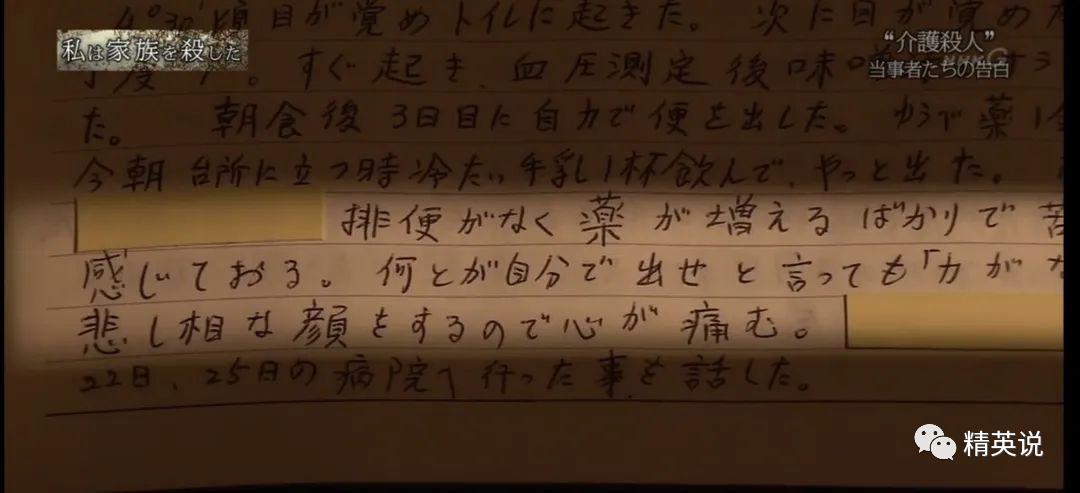 私は家族を殺した
“介護殺人”
当事者たちの告白
頃目が覚めトイレに起きた。 次に目が覚めた
すぐ起き、血圧測定後味噌
た。 朝食後3日目に自力で便を出した。ゆうべ薬1
今朝台所に立つ時冷たい牛乳1杯飲んで、やっと出た。
排便がなく薬が増えるばかりで苦
感じておる。何とか自分で出せと言っても「力がな
悲し相な顔をするので心が痛む。
22日、25日の病院へ行った事を話した。
精英说